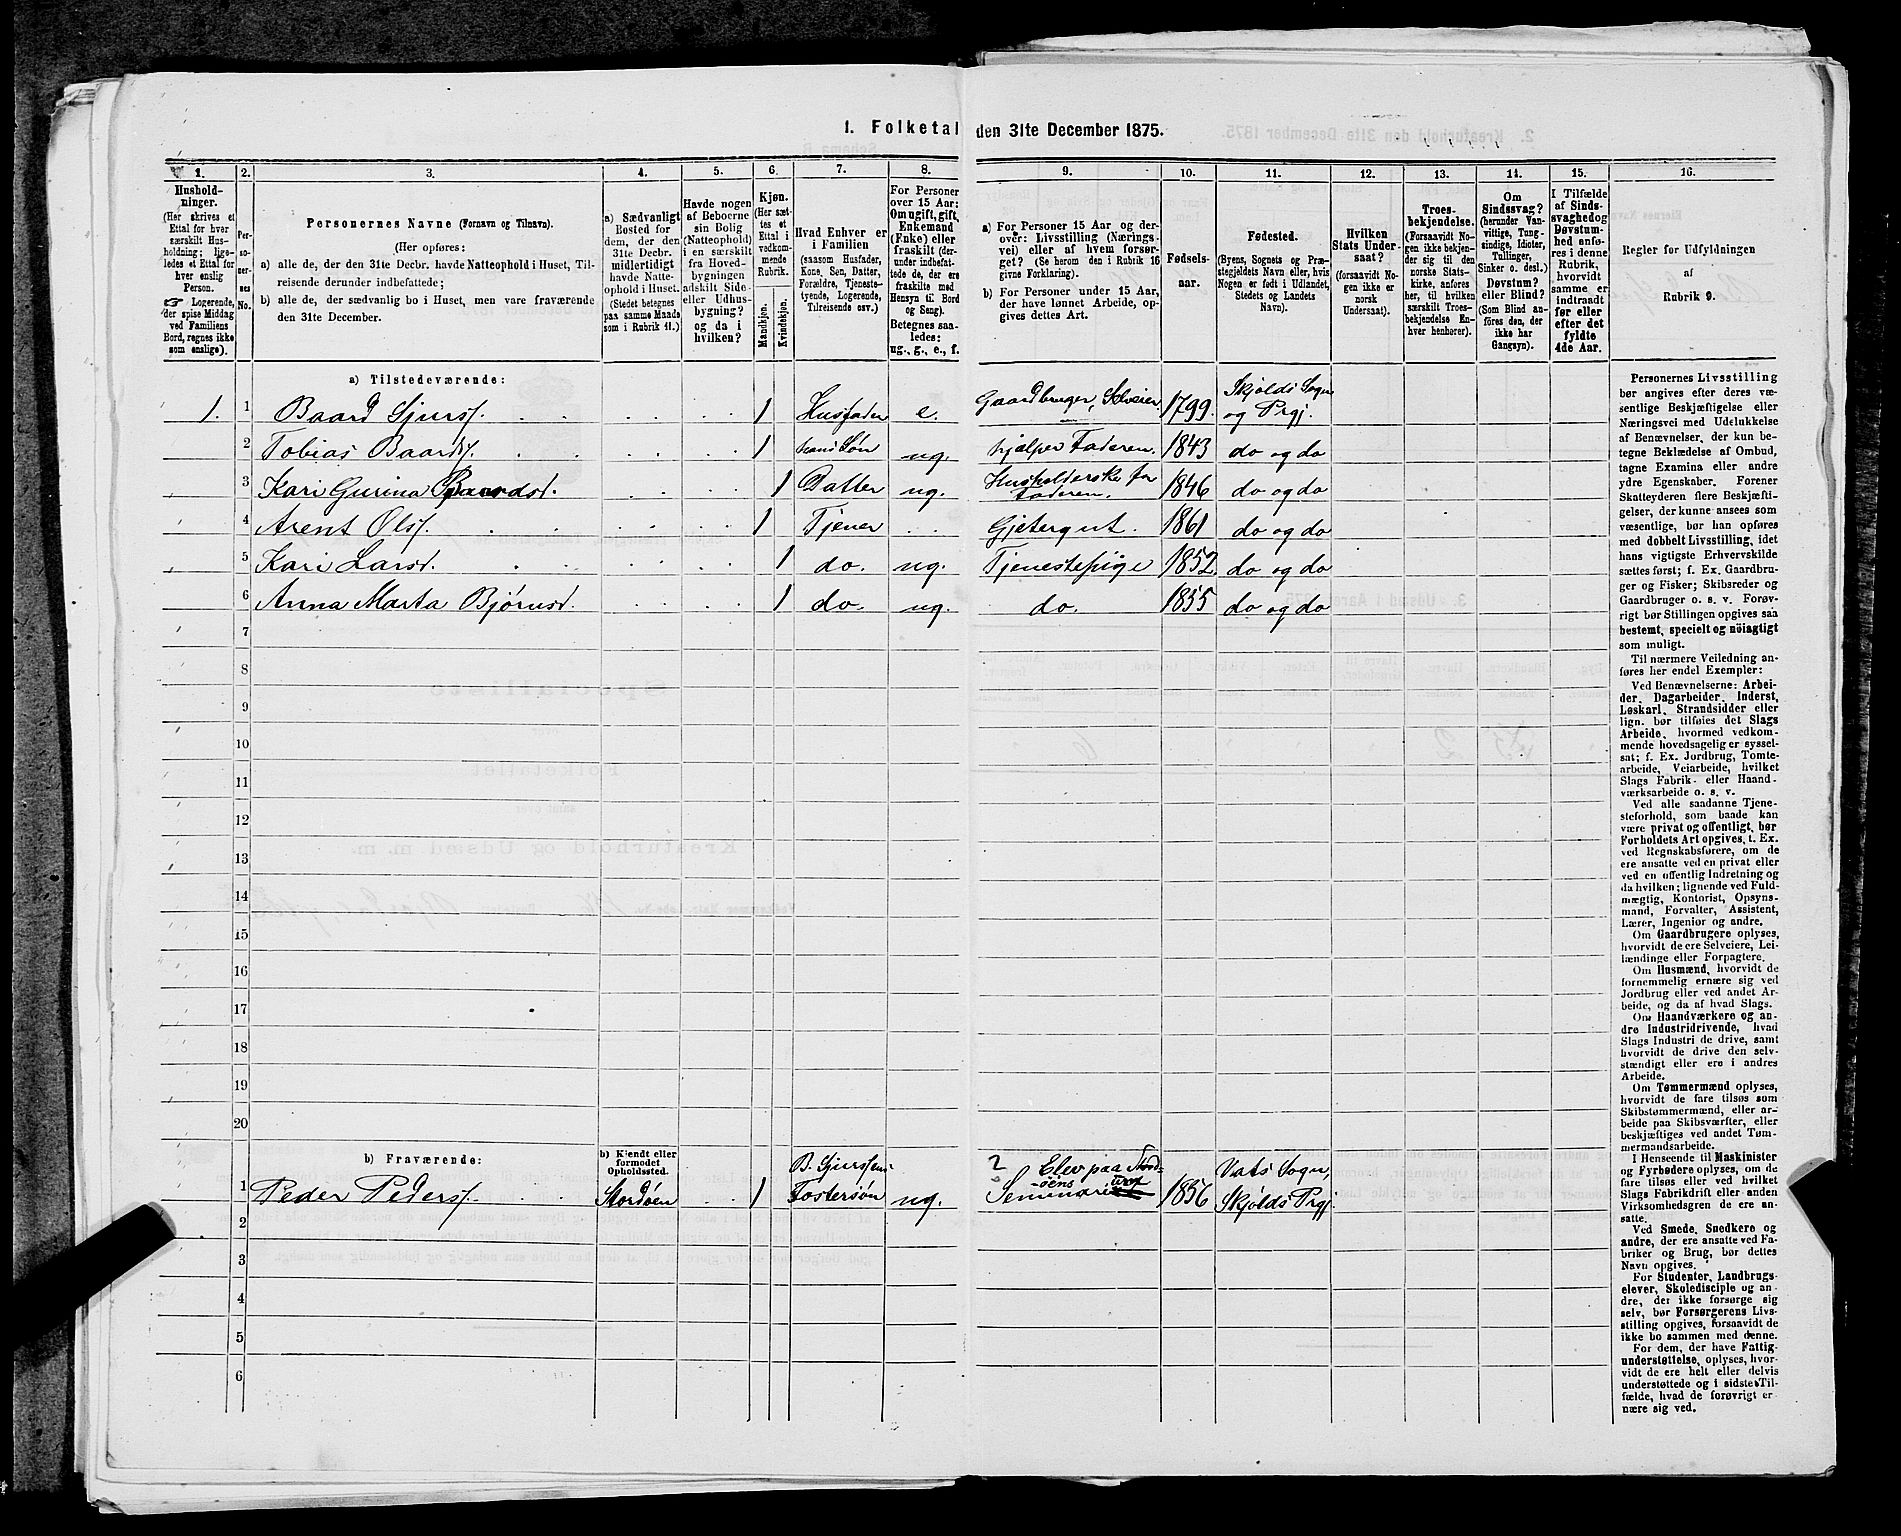 1. Folketal den 31te December 1875.
1.
Hushold-
ninger.
(Her skrives et
Ettal for hver
særskilt Hus-
holdning; lige-
ledes et Ettal for
hver enslig
Person.
☞ Logerende,
der spise Middag
ved Familiens
Bord, regnes ikke
som enslige).
2.
Per-
soner-
nes
No.
3.
Personernes Navne (Fornavn og Tilnavn).
(Her opføres:
a) alle de, der den 31te Decbr. havde Natteophold i Huset, Til-
reisende derunder indbefattede;
b) alle de, der sædvanlig bo i Huset, men vare fraværende
den 31te December.
4.
a) Sædvanligt
Bosted for
dem, der den
31te Decbr.
midlertidigt
havde Natte-
ophold i Huset.
(Stedet betegnes
paa samme Maade
som i Rubrik 11.)
5.
Havde nogen
af Beboerne
sin Bolig
(Natteophold)
i en særskilt
fra Hoved-
bygningen
adskilt Side-
eller Udhus-
bygning?
og da i
hvilken?
6.
Kjøn.
(Her sæt-
tes et
Ettal i
vedkom-
mende
Rubrik.
Mandkjøn.
Kvindekjøn.
7.
Hvad Enhver er
i Familien
(saasom Husfader,
Kone, Søn, Datter,
Forældre, Tjeneste-
tyende, Logerende,
Tilreisende osv.)
8.
For Personer
over 15 Aar:
Om ugift, gift,
Enkemand
(Enke) eller
fraskilt (der-
under indbefat-
tede de, der ere
fraskilte med
Hensyn til Bord
og Seng).
Betegnes saa-
ledes:
ug., g., e., f.
9.
a) For Personer 15 Aar og der-
over: Livsstilling (Nærings-
vei) eller af hvem forsør-
get? (Se herom den i Rubrik 16
givne Forklaring).
b) For Personer under 15 Aar,
der have lønnet Arbeide, op-
gives dettes Art.
10.
Fødsels-
aar.
11.
Fødested.
(Byens, Sognets og Præ-
stegjeldets Navn eller, hvis
Nogen er født i Udlandet,
Stedets og Landets
Navn).
12.
Hvilken
Stats Under-
saat?
(forsaavidt No-
gen ikke er
norsk
Undersaat).
13.
Troes-
bekjendelse.
(Forsaavidt No-
gen ikke bekjen-
der sig til den
norske Stats-
kirke, anføres
her, til hvilken
særskilt Troes-
bekjendelse En-
hver henhører).
14.
Om
Sindssvag?
(herunder Van-
vittige, Tung-
sindige, Idioter,
Tullinger,
Sinker o. desl.)
Døvstum?
eller Blind?
(Som Blind an-
føres den, der
ikke har
Gangsyn).
15.
I Tilfælde
af Sinds-
svaghed og
Døvstum-
hed anfø-
res i denne
Rubrik,
hvorvidt
samme er
indtraadt
før eller
efter det
fyldte
4de Aar.
16.
Regler for Udfyldningen
af
Rubrik 9.
a) Tilstedeværende:
1. 1 Baard Sjurss. 1 Husfader e. Gaardbruger, Selveier. 1799. Skjolds Sogn og Prgj.
2 Tobias Baards. 1 hans Søn ug. hjælper Faderen. 1843 do og do
3 Kari Gurina Baardsd. 1 Datter ug. Husholderske for Faderen. 1846 do og do
4 Arent Ols. 1 Tjener Gjetergut. 1861 do og do
5 Kari Larsd. 1 do. ug. Tjenestepige 1852 do og do
6 Anna Marta Bjørnsd. 1 do. ug. do. 1855 do og do
7
8
9
10
11
12
13
14
15
16
17
18
19
20
b) Fraværende:
b) Kjendt eller
formodet
Opholdssted.
1 Peder Peders. Stordøen 1 B. Sjurssens Fostersøn ug. Elev paa Stord-
øens Seminarium 1856 Vats Sogn, Skjolds Prgj.
2
3
4
5
6
Personernes Livsstilling
bør angives efter deres væ-
sentlige Beskjæftigelse eller
Næringsvei med Udelukkelse
af Benævnelser, der kun be-
tegne Beklædelse af Ombud,
tagne Examina eller andre
ydre Egenskaber. Forener
Skatteyderen flere Beskjæfti-
gelser, der kunne ansees som
væsentlige, bør han opføres
med dobbelt Livsstilling, idet
hans vigtigste Erhvervskilde
sættes først; f. Ex. Gaardbru-
ger og Fisker; Skibsreder og
Gaardbruger o. s. v. Forøv-
rigt bør Stillingen opgives saa
bestemt, specielt og nöiagtigt
som muligt.
Til nærmere Veiledning an-
føres her endel Exempler:
Ved Benævnelserne: Arbei-
der, Dagarbeider, Inderst,
Løskarl, Strandsidder eller
lign. bør tilføies det Slags
Arbeide, hvormed vedkom-
mende hovedsagelig er syssel-
sat; f. Ex. Jordbrug, Tomte-
arbeide, Veiarbeide, hvilket
Slags Fabrik- eller Haand-
værksarbeide o. s. v.
Ved alle saadanne Tjene-
steforhold, som baade kan
være privat og offentligt, bør
Forholdets Art opgives, t. Ex.
ved Regnskabsførere, om de
ere ansatte ved en privat eller
ved en offentlig Indretning og
da hvilken; lignende ved Fuld-
mægtig, Kontorist, Opsyns-
mand, Forvalter, Assistent,
Lærer, Ingeniør og andre.
Om Gaardbrugere oplyses,
hvorvidt de ere Selveiere, Lei-
lændinge eller Forpagtere.
Om Husmænd, hvorvidt de
fornemmelig ernære sig ved
Jordbrug eller ved andet Ar-
beide, og da af hvad Slags.
Om Haandværkere og an-
dre Industridrivende, hvad
Slags Industri de drive, samt
hvorvidt de drive den selv-
stændigt eller ere i andres
Arbeide.
Om Tømmermænd oplyses,
hvorvidt de fare tilsøs som
Skibstømmermænd, eller ar-
beide paa Skibsværfter, eller
beskjæftiges ved andet Tøm-
mermandsarbeide.
I Henseende til Maskinister
og Fyrbødere oplyses, om de
fare tilsøs eller ved hvilket
Slags Fabrikdrift eller anden
Virksomhedsgren de ere an-
satte.
Ved Smede, Snedkere og
andre, der ere ansatte ved Fa-
briker og Brug, bør dettes
Navn opgives.
For Studenter, Landbrugs-
elever, Skoledisciple og an-
dre, der ikke forsørge sig
selv, bør Forsørgerens Livs-
stilling opgives, forsaavidt de
ikke bo sammen med denne.
For dem, der have Fattig-
understøttelse, oplyses, hvor-
vidt de ere helt eller delvis
understøttede og i sidste Til-
fælde, hvad de forøvrigt er-
nære sig ved.